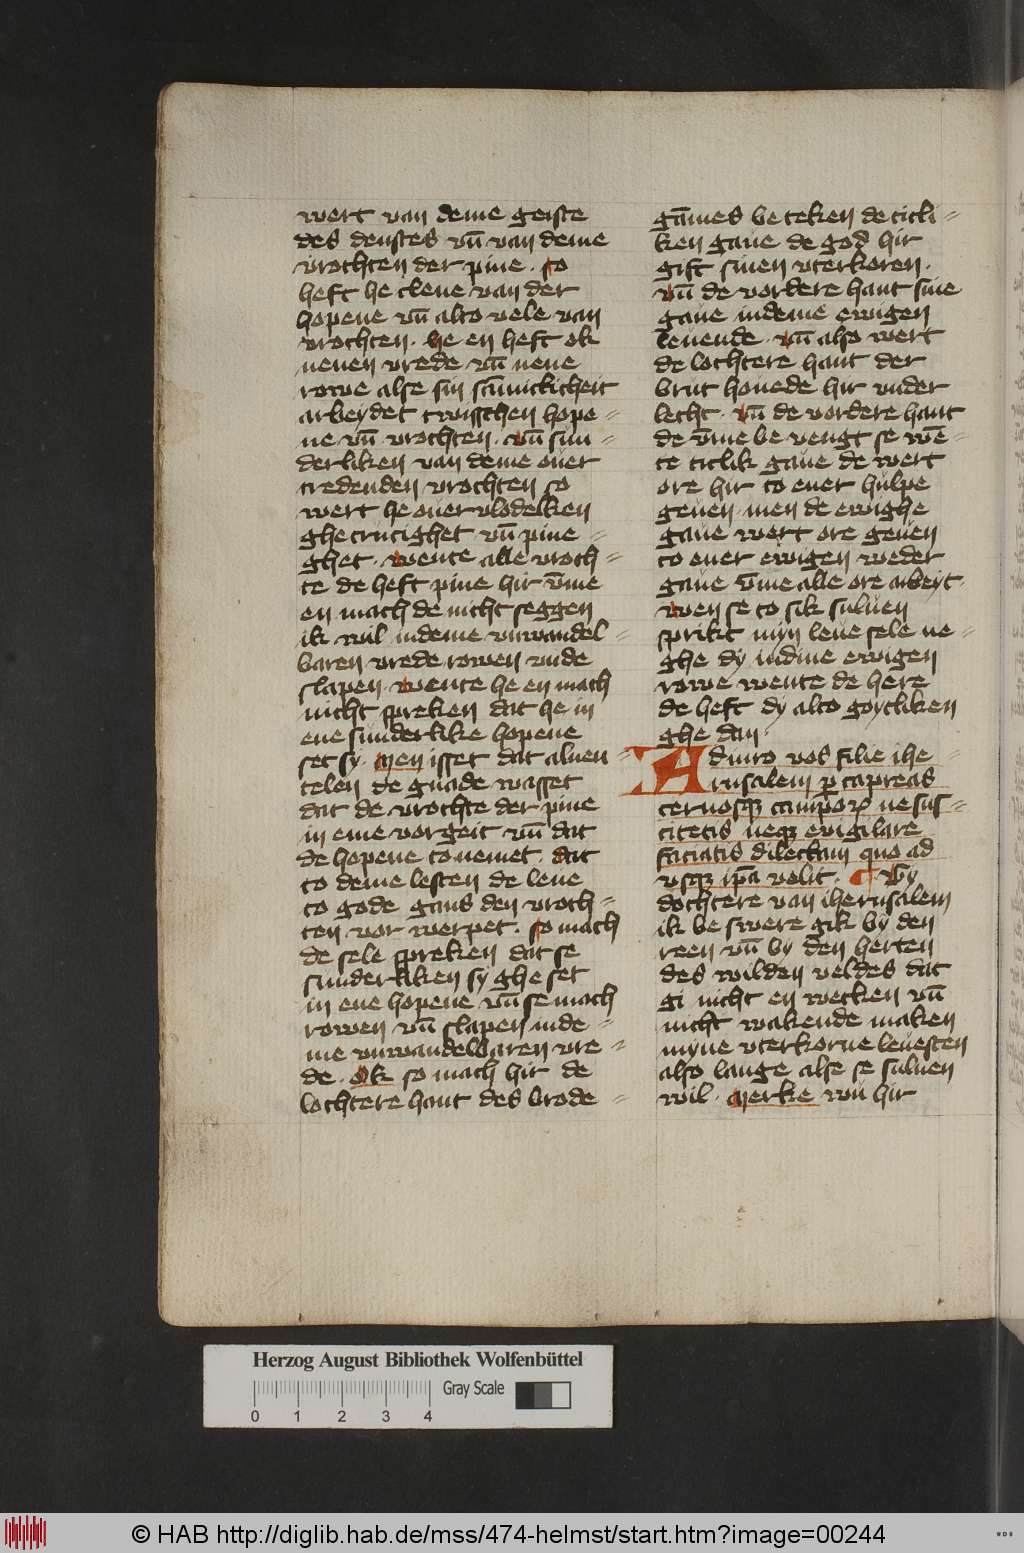 wert van deme geiste
des denstes vn̄ van deme
vrochten der pine · so
heft he cleue van der
hopene vn̄ alto vele van
vrochten · he en heft ok
nenen vrede vn̄ nene
rowe alse sin sāmickicheit
arbeydet twisschen hope=
ne vn̄ vrochten · vn̄ sun=
derliken van deme ouer
tredenden vrochten so
wert he ouer vlodelken
ghecrucighet vn̄ pine=
ghet · wente alle vroch=
te de heft pine hir v̄me
en mach de nicht seggen
ik wil indeme vnwandel=
baren vrede rowen vnde
slapen · wente he en mach
nicht spreken dat he in
ene sunderlike hopene
set sy · Men isset dat aluen=
telen de gnade wasset
dat de vrochte der pine
in eme vorgeit vn̄ dat
de hopene to nemet · dat
to deme lesten de leue
to gode gans den vroch=
ten vor werpet · so mach
de sele spreken dat se
sunderliken sy ghe set
in ene hopene vn̄ se mach
rowen vn̄ slapen inde=
me vnwandelbaren vre=
de · Ok so mach hir de
lochtere hant des brode=
gāmes be teken de ticli=
ken gaue de god hir
gift sinen vterkoren ·
vn̄ de vordere hant sine
gaue indeme ewigen
leuende · vn̄ also wert
de lochtere hant der
brut houede hir vnder
lecht · vn̄ de vordere hant
de v̄me be vengt se wē=
te ticlik gaue de wert
ore hir to ener hulpe
geuen · men de ewighe
gaue wert ore geuen
to ener ewigen weder
gaue v̄me alle ore arbeyt ·
wen se to sik suluen
sprikt myn leue sele ne=
ghe dy indine ewigen
rowe wente de here
de heft dy alto goytliken
ghe dan ·
Adiuro vos filie ihe=
rusalem ꝑ capreas
ceruosqꝫ campoꝝ ne sus=
citetis neqꝫ euigilare
faciatis dilectam quo ad
vsqꝫ ip̄a velit · ¶ Gy
dochtere van iherusalem
ik be swere gik by den
reen vn̄ by den herten
des wilden veldes dat
gi nicht en wecken vn̄
nicht wakende maken
myne vterkorne leuesten
also lange alse se suluen
wil · Merke wu hir
Herzog August Bibliothek Wolfenbüttel
Gray Scale
0 1 2 3 4
© HAB http://diglib.hab.de/mss/474-helmst/start.htm?image=00244
WDB